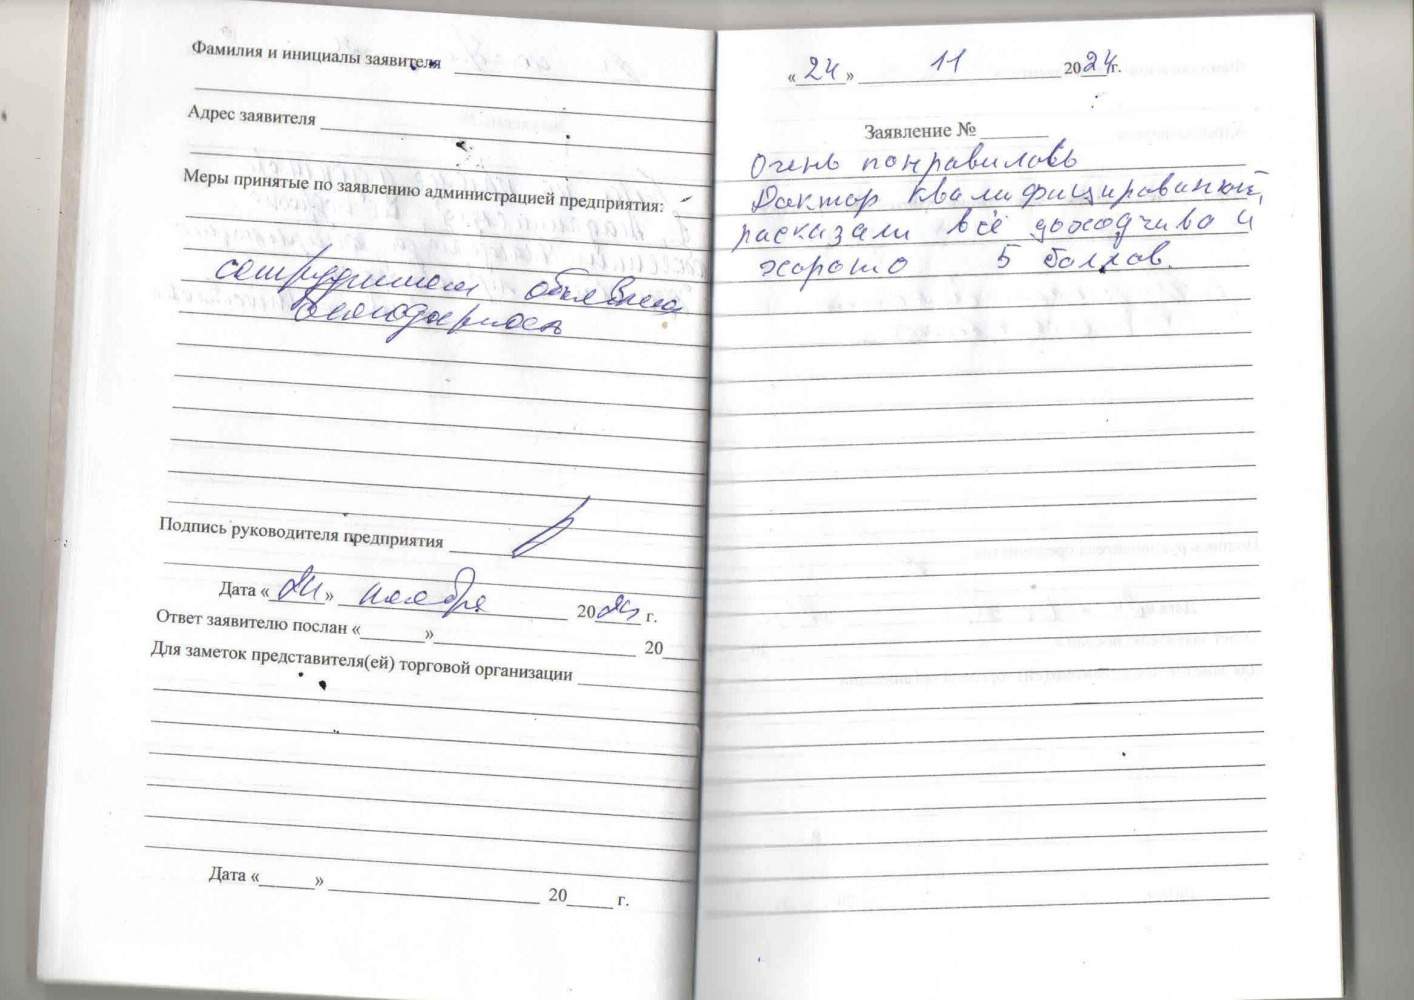 Фамилия и инициалы заявителя
Адрес заявителя
Меры принятые по заявлению администрацией предприятия:
сотрудникам объявлена
благодарность
Подпись руководителя предприятия
Дата «24» ноября 2024 г.
Ответ заявителю послан «______»____________ 20___
Для заметок представителя(ей) торговой организации
Дата «______» ____________ 20_____ г.
«24» 11 2024г.
Заявление № _______
Очень понравилось
Доктор квалифицированный,
расказали всё доходчиво и
хорошо 5 баллов.